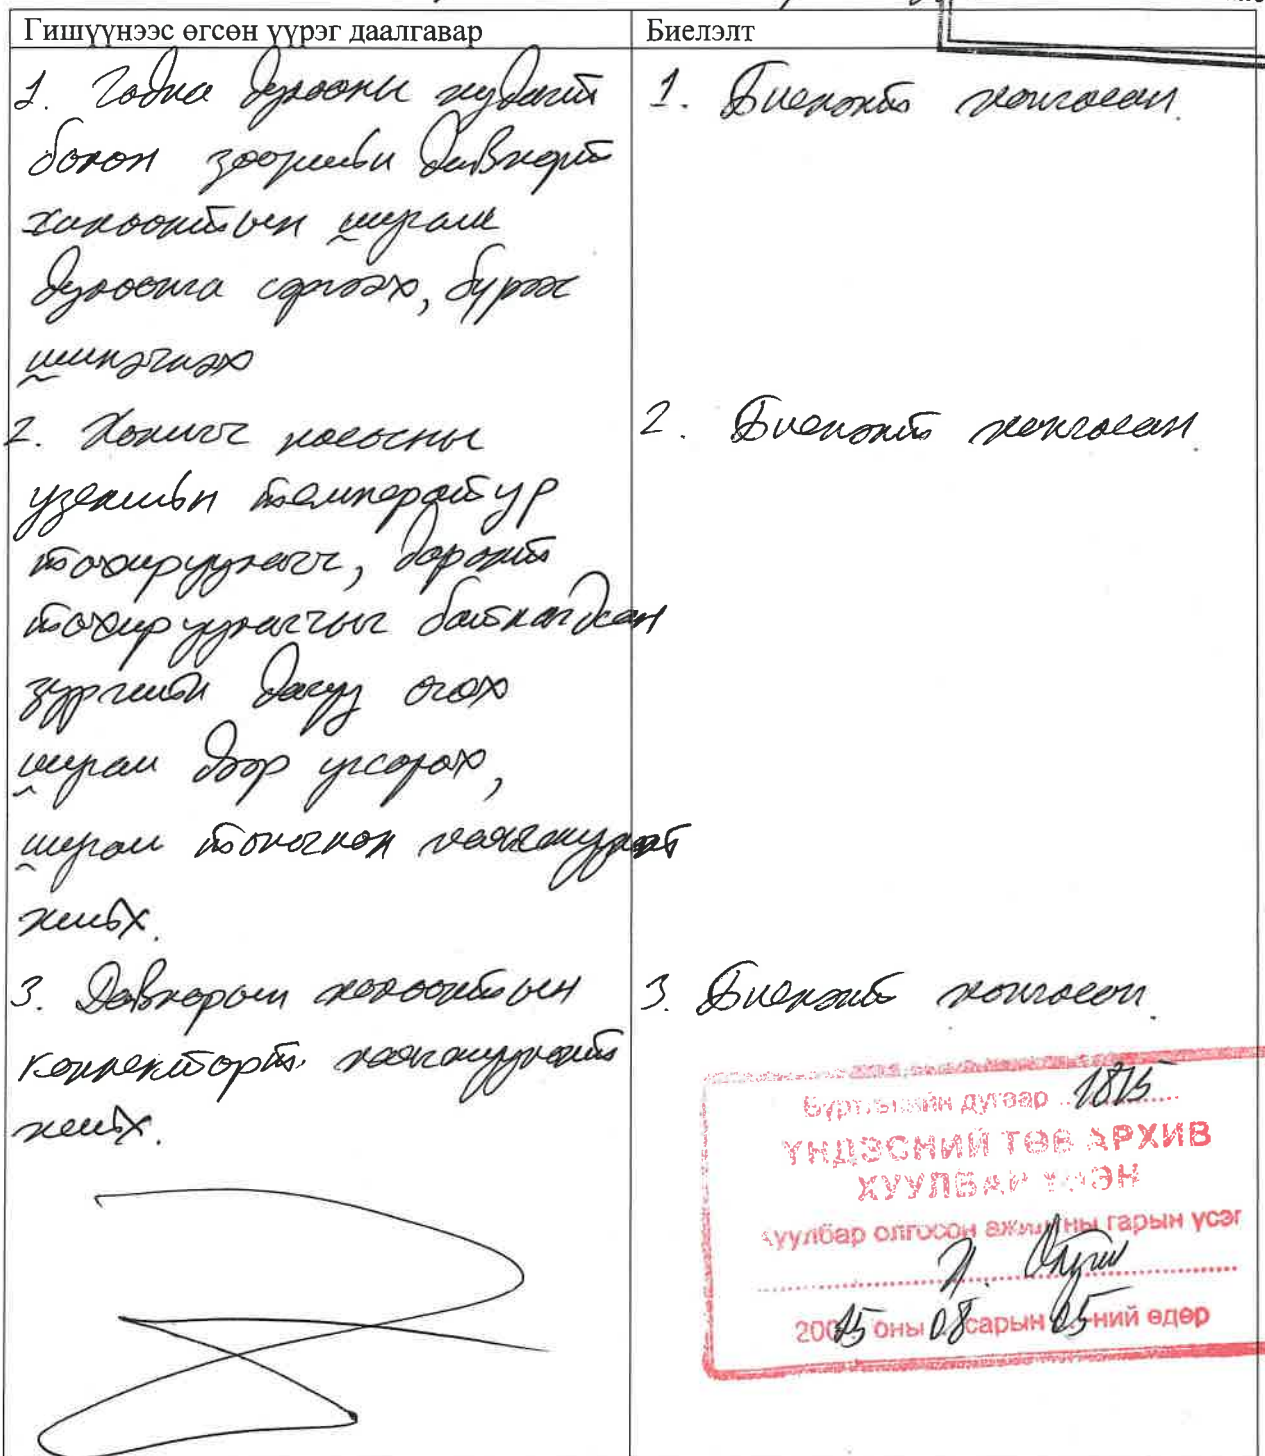 Гишүүнээс өгсөн үүрэг даалгавар
Биелэлт
1. Гадна дулааны худагт
болон зоорийн давхарт
халаалтын шугам
дулаалга сэргээх, бүрэн
шинэчлэх
1. Биелэлт хангасан.
2. Холигч насосны
узелийн температур
тохируулагч, даралт
тохируулагчыг батлагдсан
зургийн дагуу өгөх
шугам дээр угсрах,
шугам тоноглол хаягжуулалт
хийх.
2. Биелэлт хангасан.
3. Давхарын халаалтын
коллекторт хаягжуулалт
хийх.
3. Биелэлт хангасан.
Бүртгэлийн дугаар 1815
ҮНДЭСНИЙ ТӨВ АРХИВ
ХУУЛБАР ҮНЭН
Хуулбар олгосон ажилтны гарын үсэг
2015 оны 08 сарын 05-ний өдөр